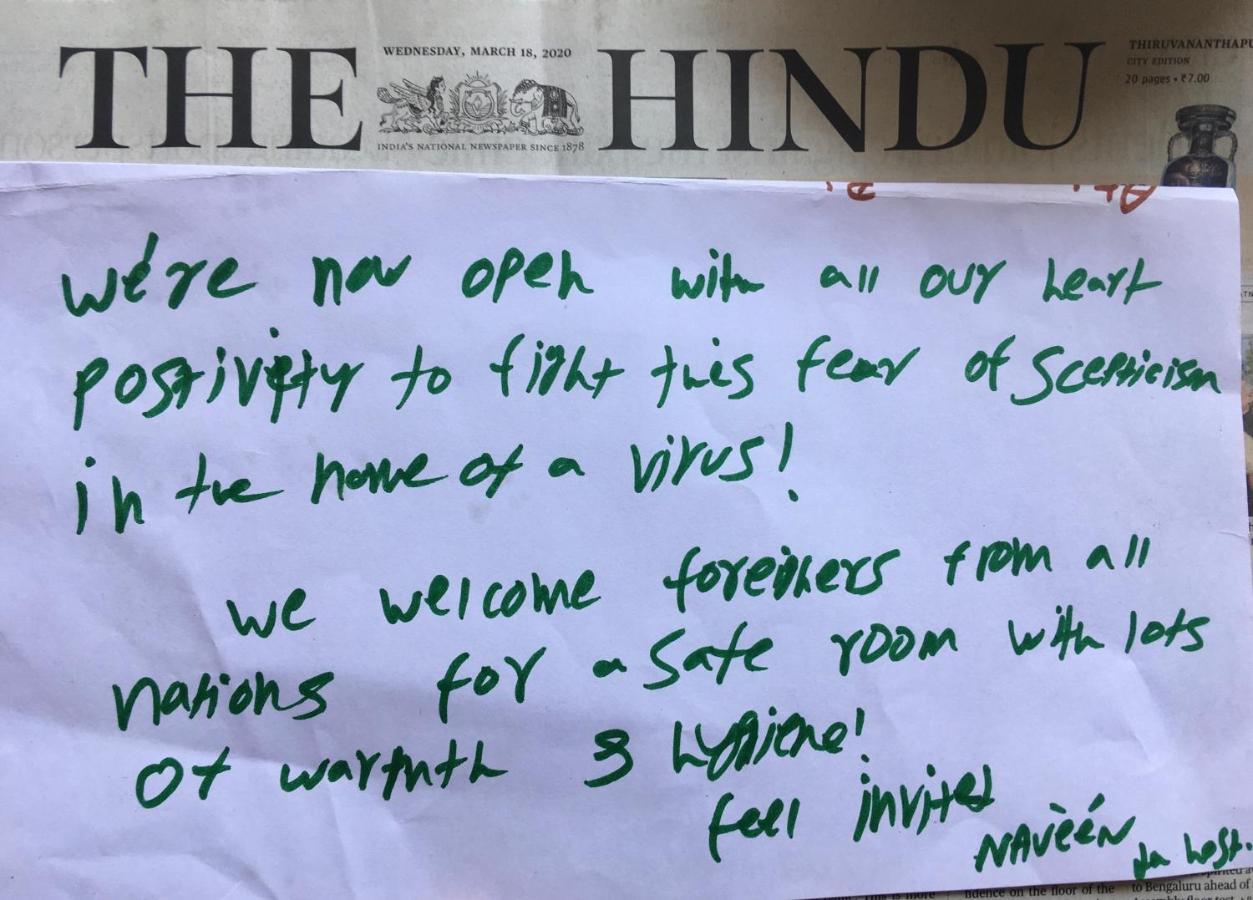 THE HINDU
WEDNESDAY, MARCH 18, 2020
INDIA'S NATIONAL NEWSPAPER SINCE 1878
THIRUVANANTHAPU
CITY EDITION
20 pages • ₹7.00
we're now open with all our heart
positivity to fight this fear of Scepticism
in the name of a virus!
we welcome foreigners from all
nations for a safe room with lots
of warmth & hygiene!
feel invited
NAVèéN
host.
dence on the floor of the
to Bengaluru ahead of